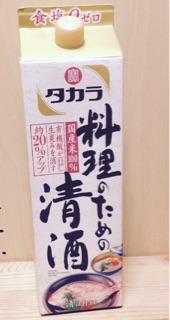 食塩ゼロ
寶
タカラ
料理のための
清酒
国産米100%
有機酸の力が
生臭みを消す
約20%アップ